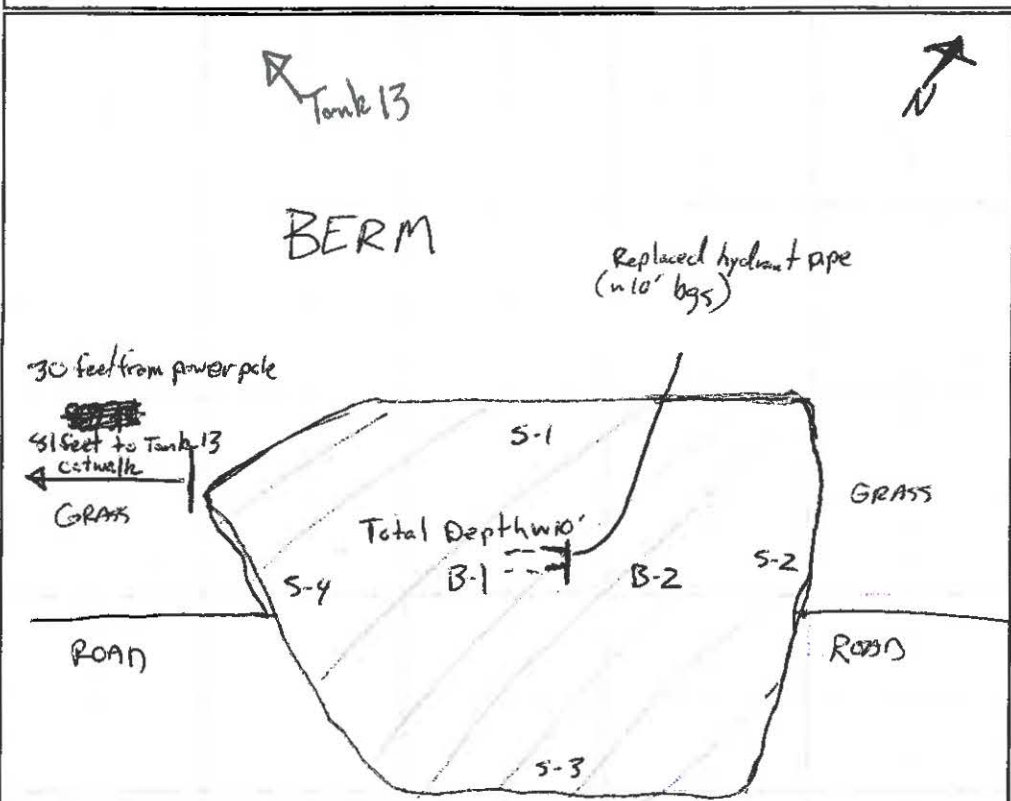 Tank 13
N
BERM
Replaced hydrant pipe
(~10' bgs)
30 feet from power pole
81 feet to Tank 13
catwalk
GRASS
S-1
GRASS
Total Depth ~10'
S-2
B-1
B-2
S-4
ROAD
ROAD
S-3